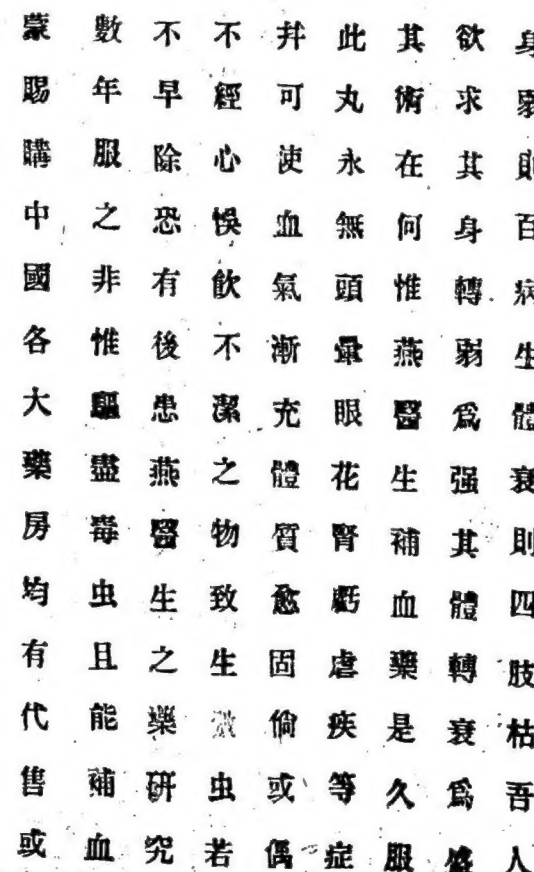 身弱則百病生體衰則四肢枯吾人
欲求其身轉弱爲强其體轉衰爲盛
其術在何惟燕醫生補血藥是久服
此丸永無頭暈眼花腎虧虐疾等症
并可使血氣漸充體質愈固倘或偶
不經心悞飲不潔之物致生虫若
不早除恐有後患燕醫生之藥研究
數年服之非惟驅盡毒虫且能補血
蒙賜購中國各大藥房均有代售或